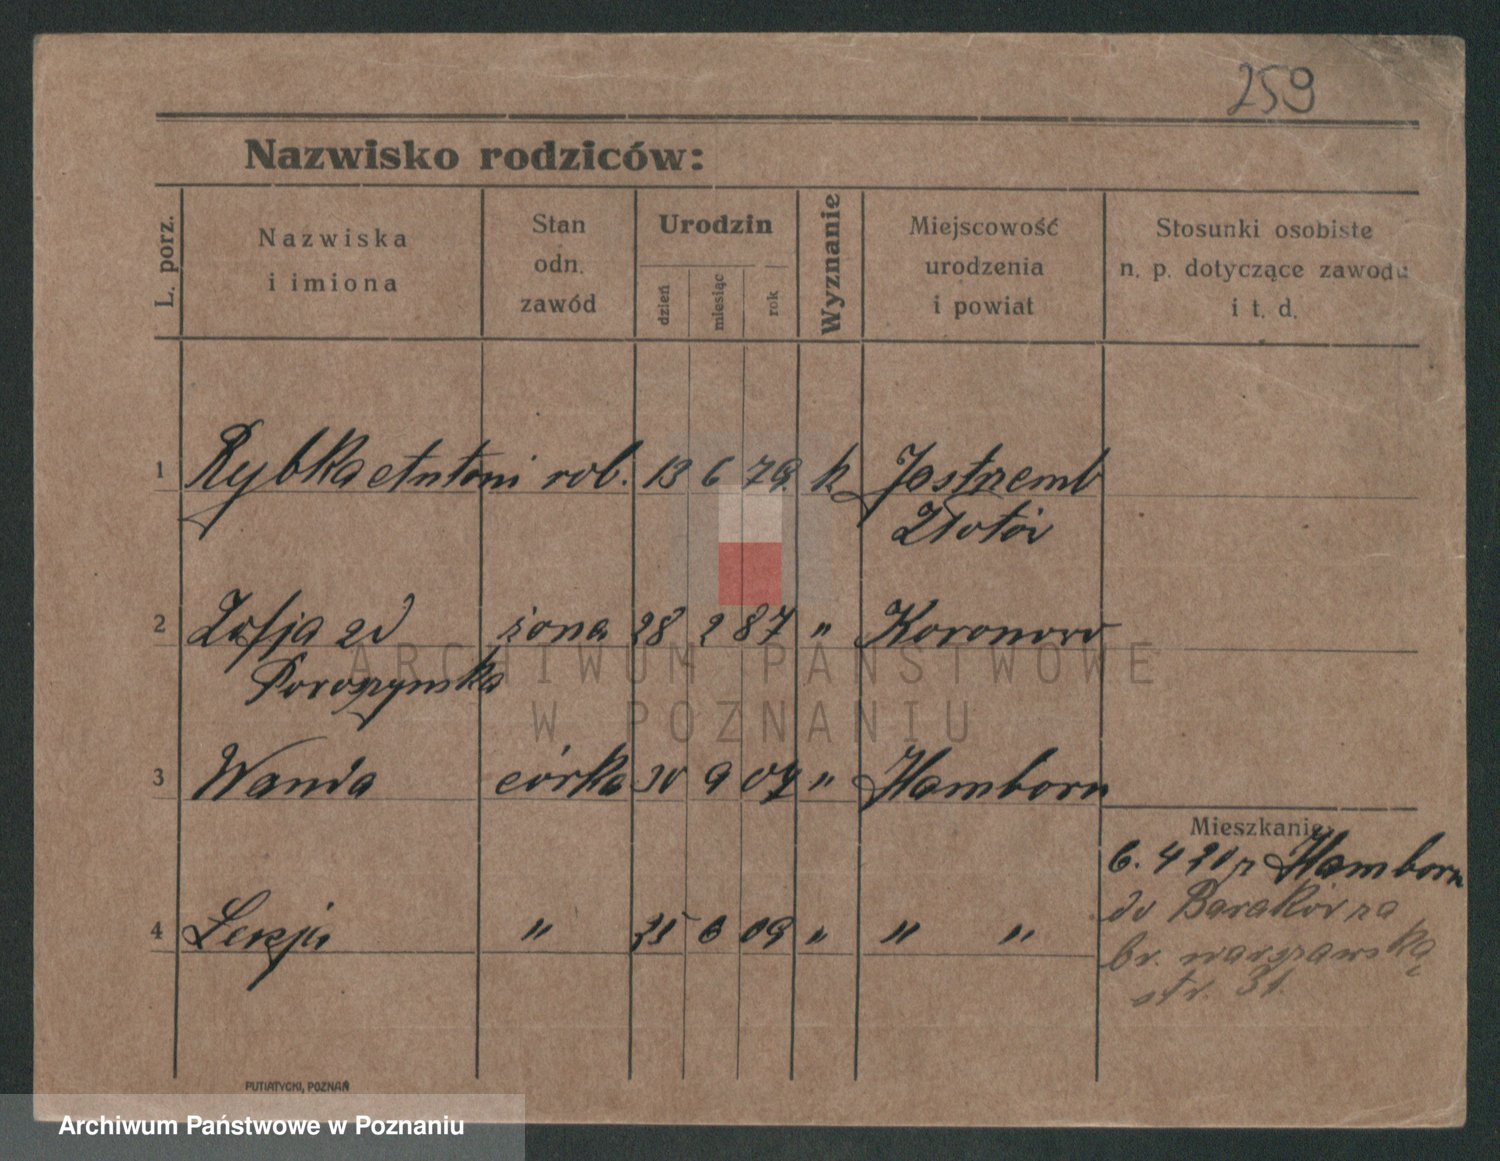 259
Nazwisko rodziców:
L. porz.
Nazwiska
i imiona
Stan
odn.
zawód
Urodzin
dzień
miesiąc
rok
Wyznanie
Miejscowość
urodzenia
i powiat
Stosunki osobiste
n. p. dotyczące zawodu
i t. d.
1 Rybka Antoni rob. 13 6 79. k. Jastrzemb
Złotów
2 Zofja zd żona 28 2 87 " Koronowo
3 Wanda córka 30 9 07 " Hamborn
Mieszkanie
6. 4 21 z Hamborn
4 " 25 6 09 " " "
do Baraków za
br. warszawską
str. 31.
PUTIATYCKI, POZNAŃ
ARCHIWUM PAŃSTWOWE
W POZNANIU
Archiwum Państwowe w Poznaniu